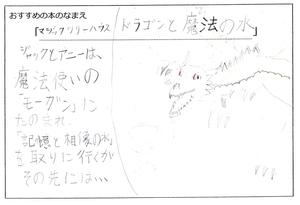 おすすめの本のなまえ
「マジックツリーハウス ドラゴンと魔法の水」
ジャックとアニーは、
魔法使いの
「モーガン」に
たのまれ、
「記憶と想像の水」
を取りに行くが
その先には…